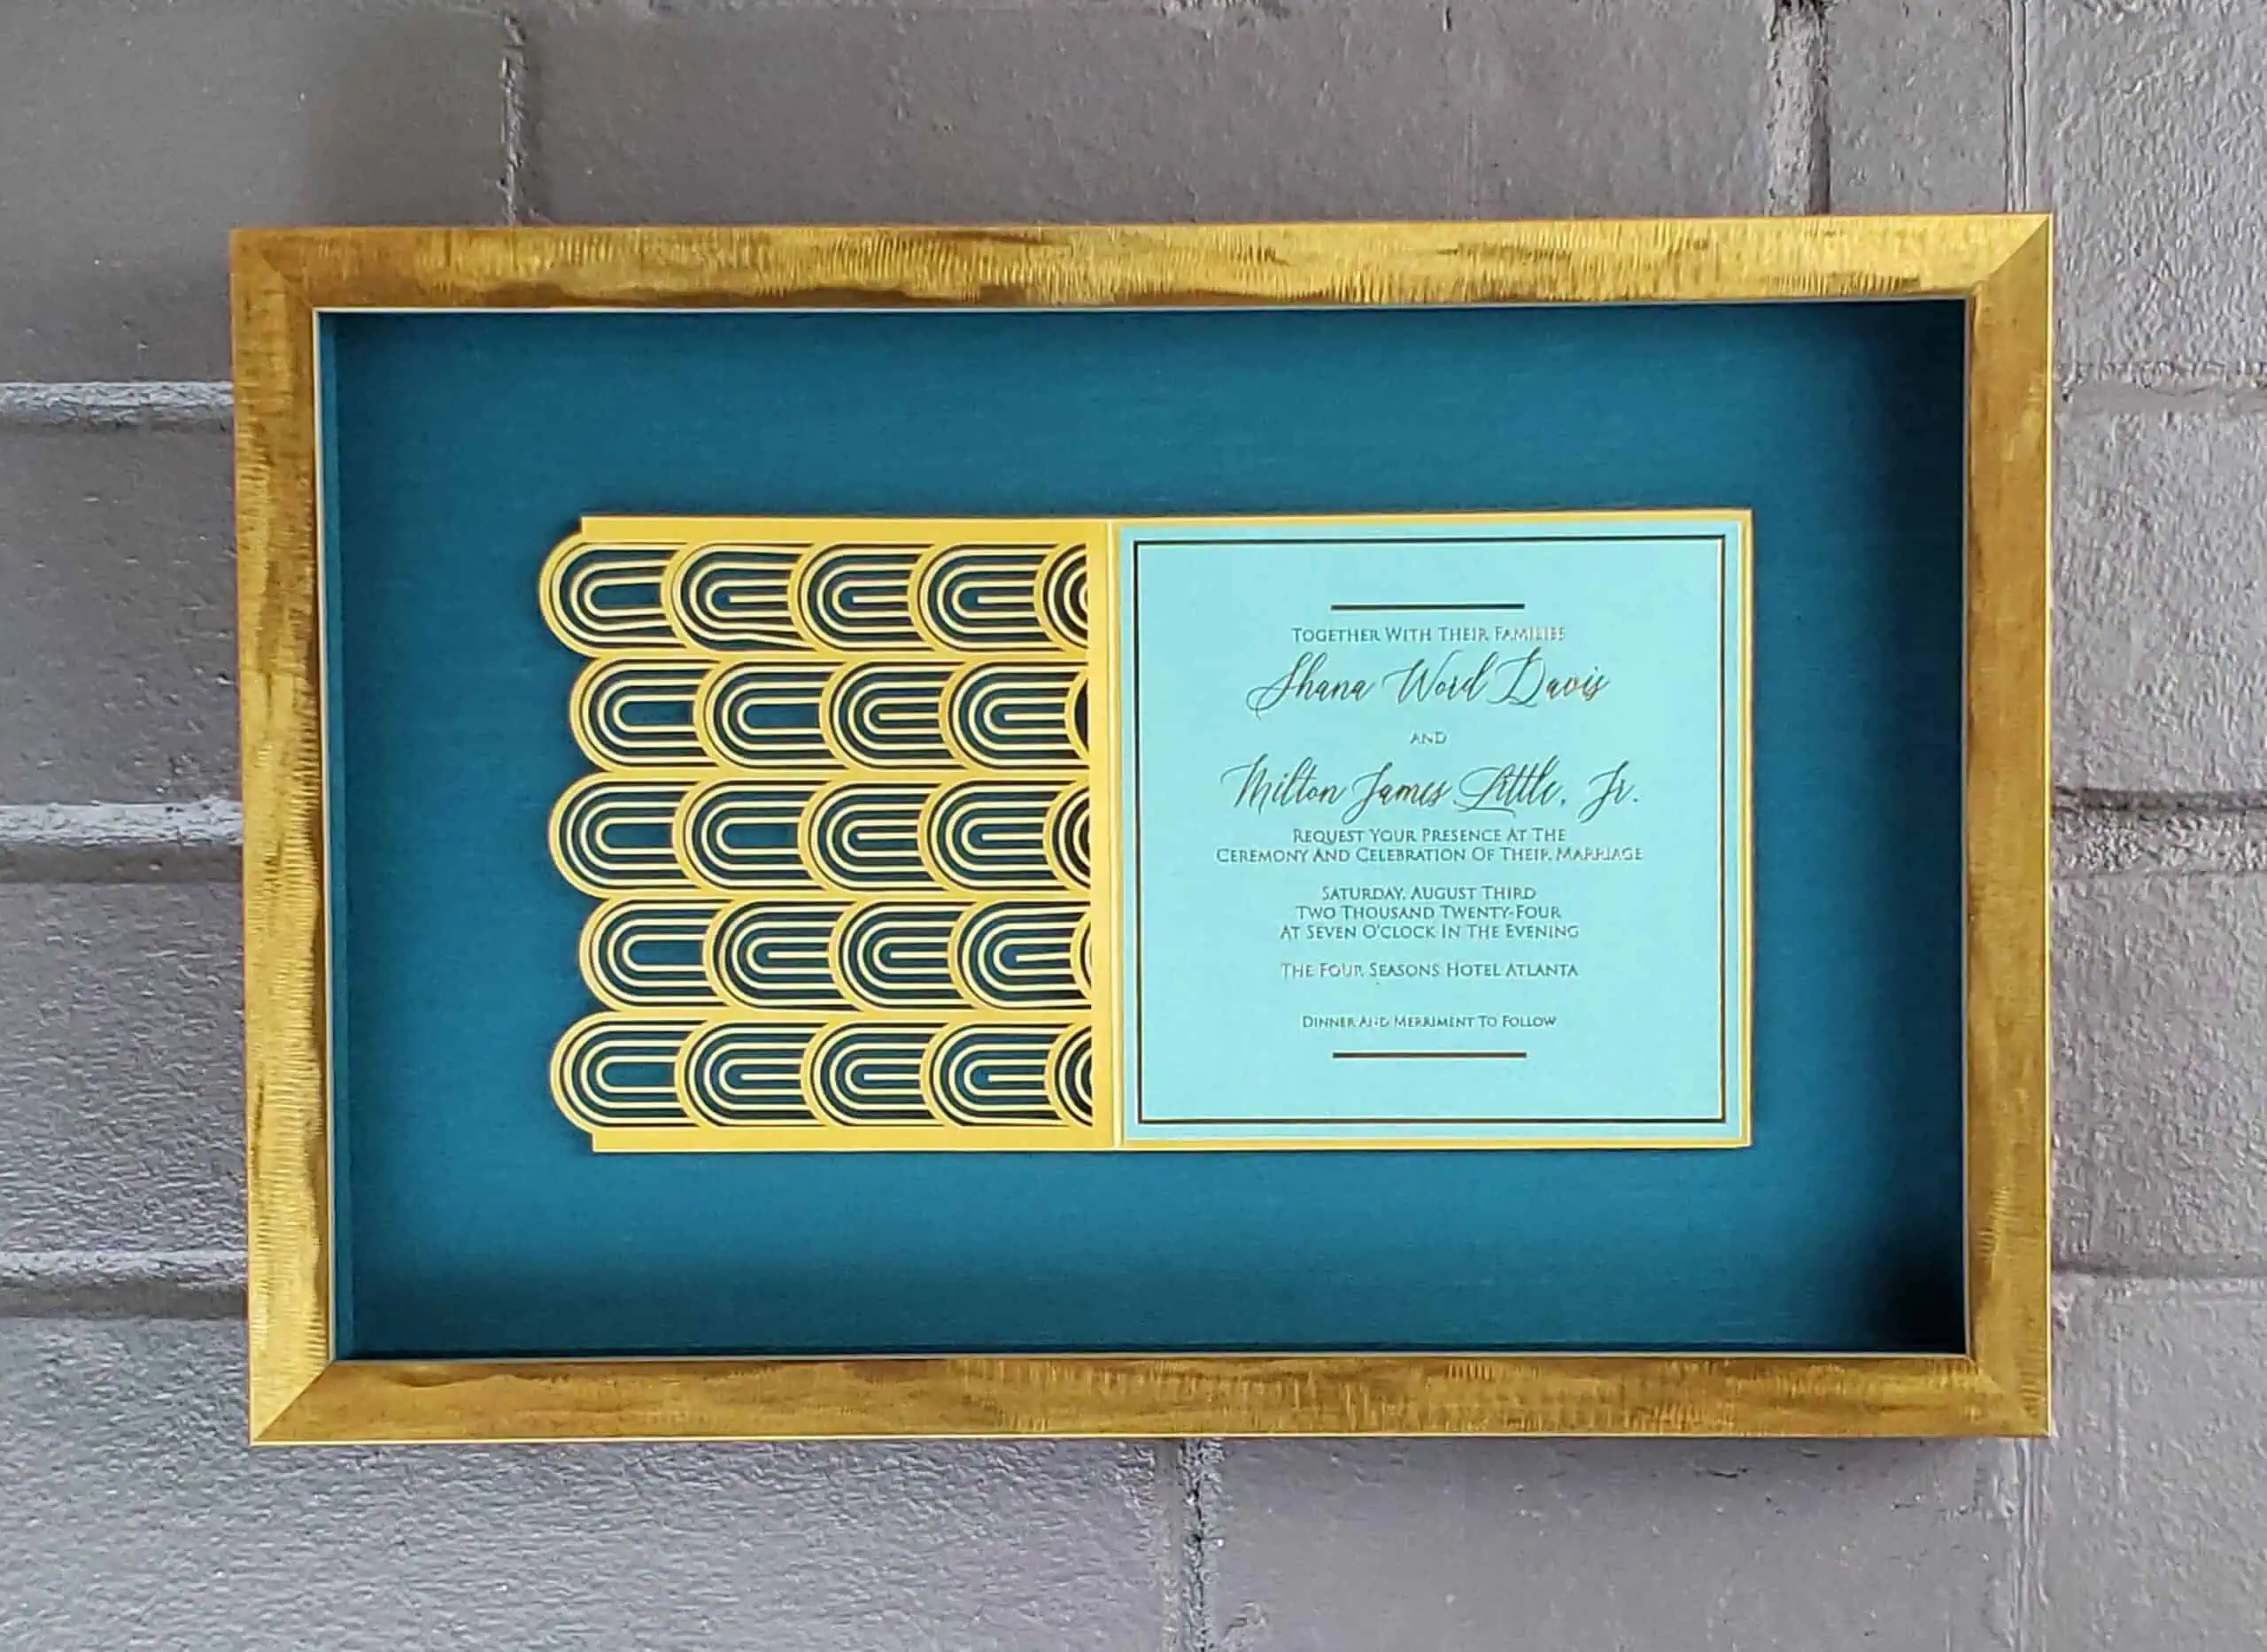 Together With Their Families
Shana Word Davis
and
Milton James Little, Jr.
Request Your Presence At The
Ceremony And Celebration Of Their Marriage
Saturday, August Third
Two Thousand Twenty-Four
At Seven O'clock In The Evening
The Four Seasons Hotel Atlanta
Dinner And Merriment To Follow